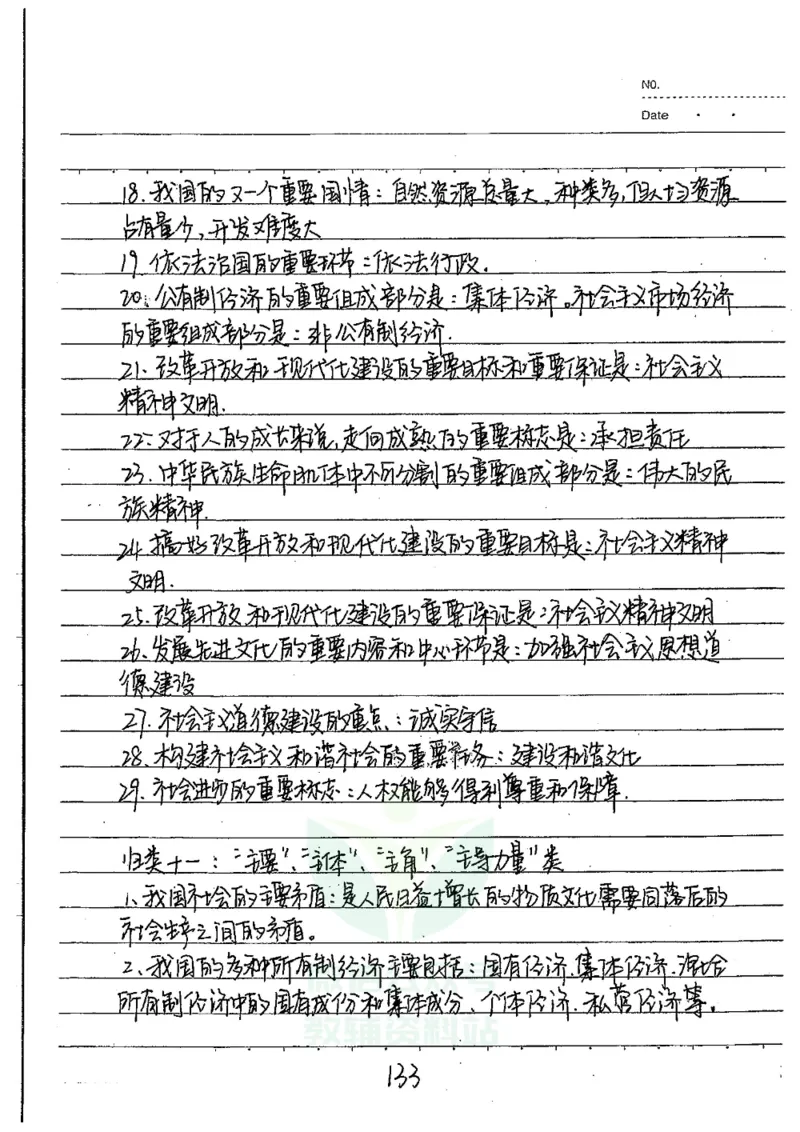 NO.
Date
18.我国的又一个重要国情：自然资源总量大，种类多，但人均资源
占有量少，开发难度大
19 依法治国的重要环节：依法行政。
20.公有制经济的重要组成部分是：集体经济。社会主义市场经济
的重要组成部分是：非公有制经济.
21.改革开放和现代化建设的重要目标和重要保证是：社会主义
精神文明.
22.对于人的成长来说，走向成熟的重要标志是：承担责任
23.中华民族生命肌体中不可分割的重要组成部分是：伟大的民
族精神.
24.搞好改革开放和现代化建设的重要目标是：社会主义精神
文明.
25.改革开放和现代化建设的重要保证是：社会主义精神文明
26.发展先进文化的重要内容和中心环节是：加强社会主义思想道
德建设
27.社会主义道德建设的重点：诚实守信
28.构建社会主义和谐社会的重要任务：建设和谐文化
29.社会进步的重要标志：人权能够得到尊重和保障.
归类十一："主要"、"主体"、"主角"、"主导力量"类
1、我国社会的主要矛盾：是人民日益增长的物质文化需要同落后的
社会生产之间的矛盾。
2、我国的多种所有制经济主要包括：国有经济、集体经济、混合
所有制经济中的国有成份和集体成分、个体经济、私营经济等。
教辅资料站
133